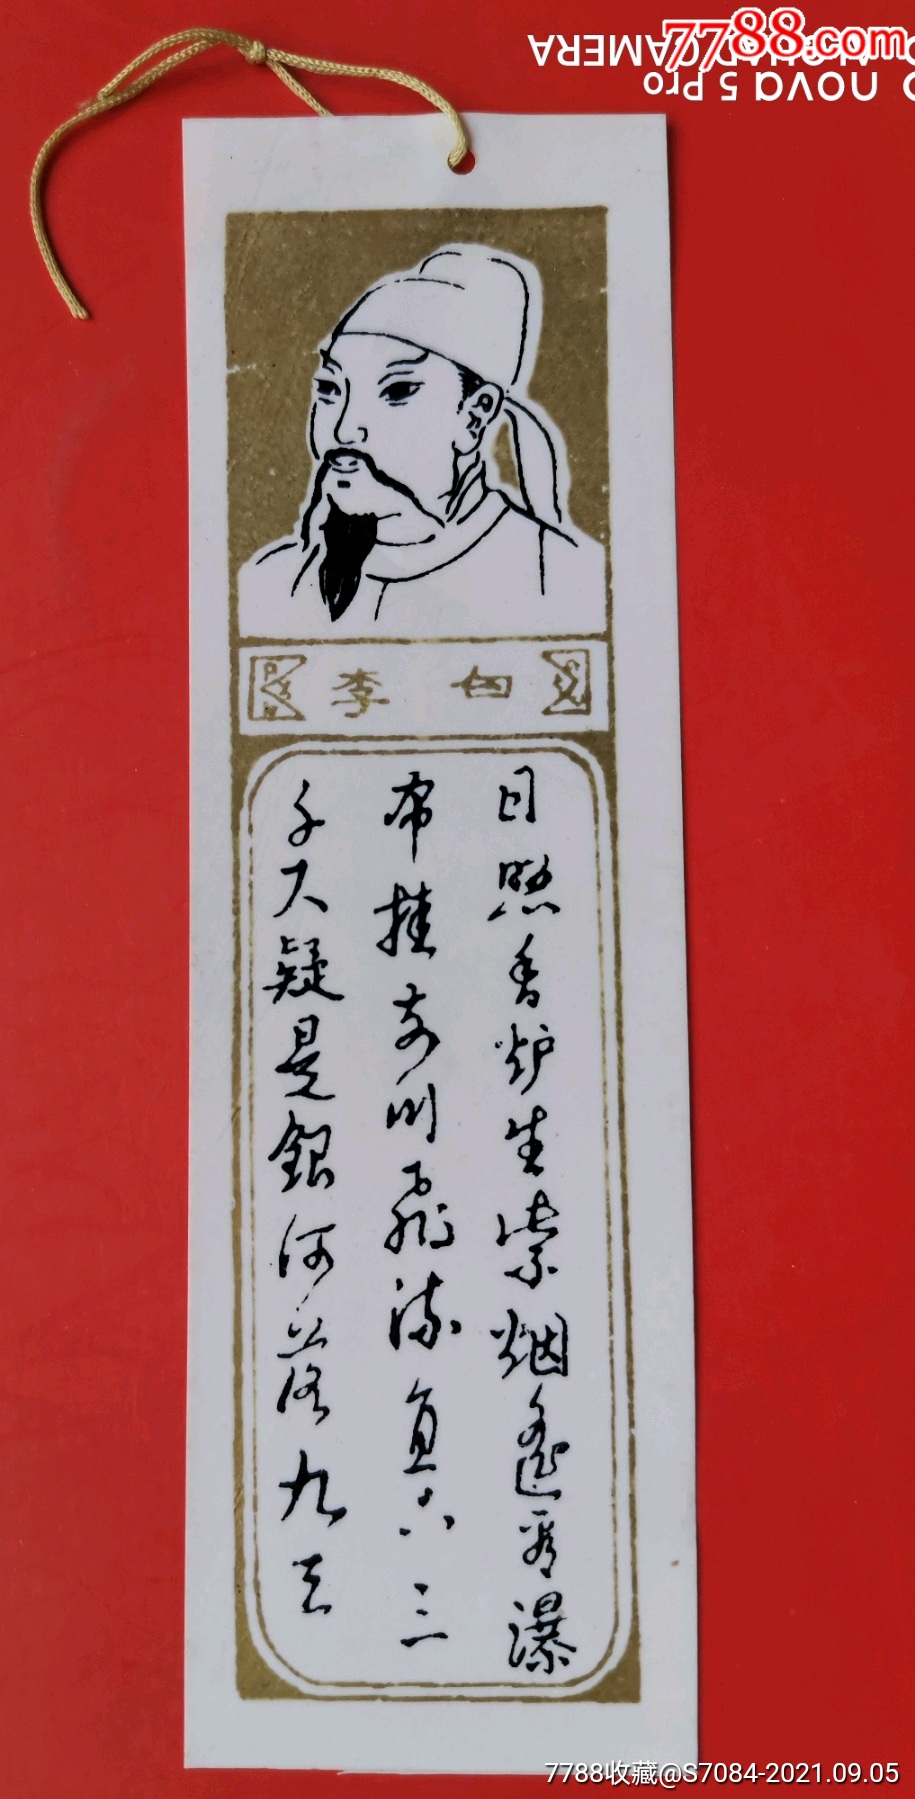 7788.com
QUAD CAMERA
nova 5 Pro
李白
日照香炉生紫烟遥看瀑
布挂前川飛流直下三
千尺疑是銀河落九天
7788收藏@S7084-2021.09.05